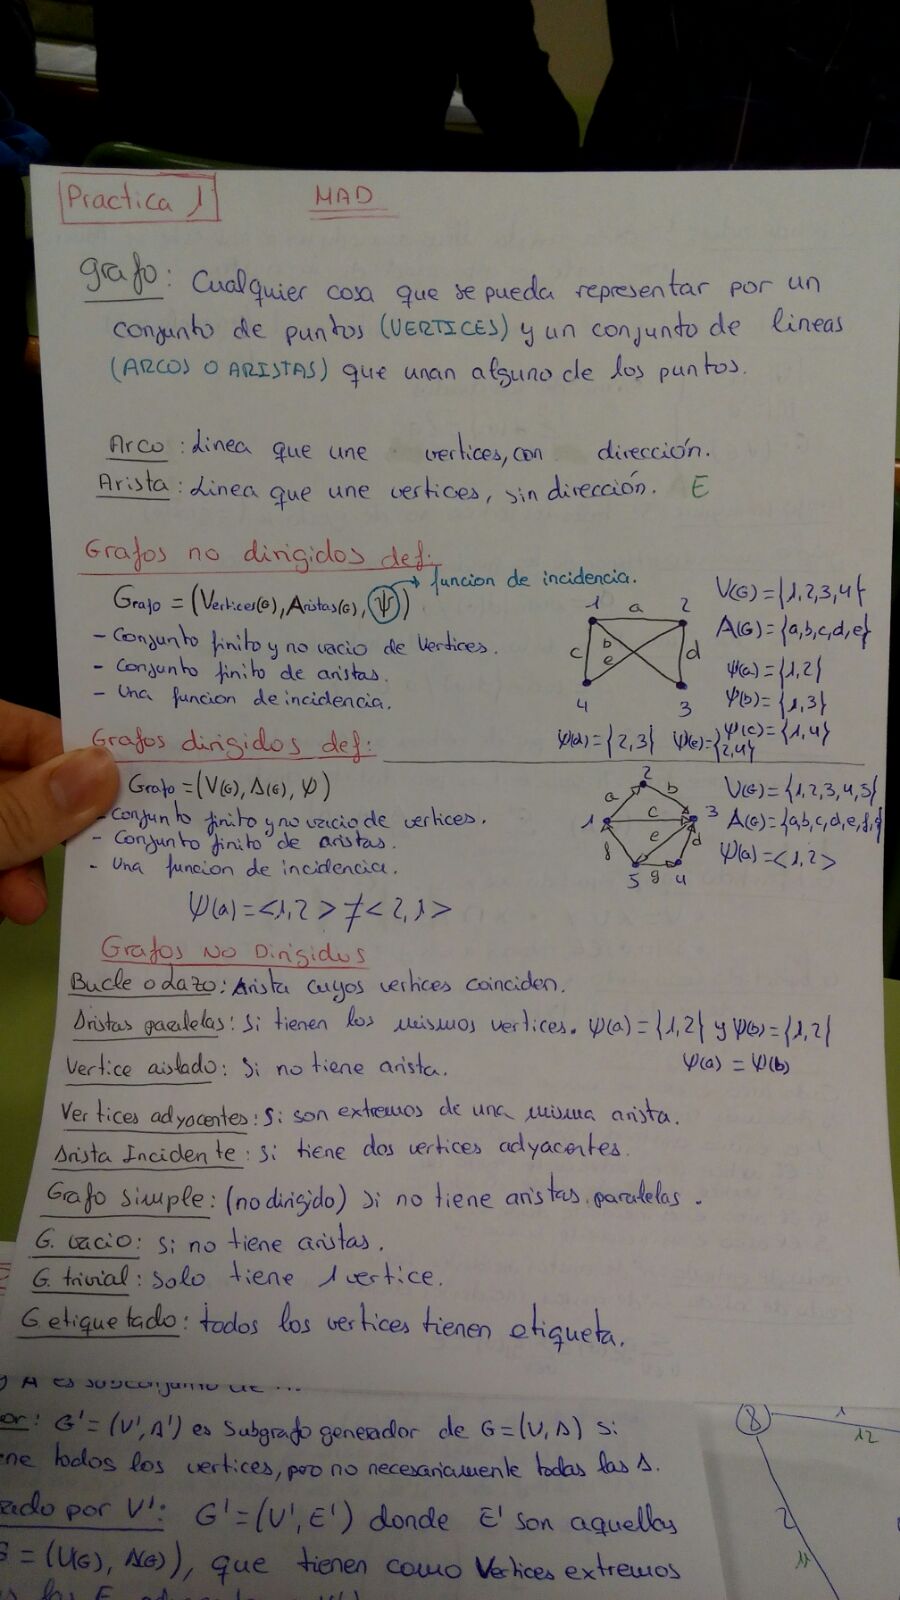 Practica 1
MAD
grafo: Cualquier cosa que se pueda representar por un
conjunto de puntos (VERTICES) y un conjunto de lineas
(ARCOS O ARISTAS) que unan alguno de los puntos.
Arco: Linea que une vertices, con dirección.
Arista: Linea que une vertices, sin dirección. E
Grafos no dirigidos def:
funcion de incidencia.
Grafo = (Vertices(G), Aristas(G), Ψ)
- Conjunto finito y no vacio de Vertices.
- Conjunto finito de aristas.
- Una funcion de incidencia.
1 a 2
c b e d
4 3
V(G) = {1,2,3,4}
A(G) = {a,b,c,d,e}
Ψ(a) = {1,2}
Ψ(b) = {1,3}
Ψ(c) = {1,4}
Ψ(d) = {2,3} Ψ(e) = {2,4}
Grafos dirigidos def:
Grafo = (V(G), A(G), Ψ)
- Conjunto finito y no vacio de vertices.
- Conjunto finito de aristas.
- Una funcion de incidencia.
Ψ(a) = <1,2> ≠ <2,1>
2
a b
1 c 3
f e d
5 g 4
V(G) = {1,2,3,4,5}
A(G) = {a,b,c,d,e,f,g
Ψ(a) = <1,2>
Grafos NO Dirigidos
Bucle o Lazo: Arista cuyos vertices coinciden.
Aristas paralelas: Si tienen los mismos vertices. Ψ(a) = {1,2} y Ψ(b) = {1,2}
Ψ(a) = Ψ(b)
Vertice aislado: Si no tiene arista.
Vertices adyacentes: Si son extremos de una misma arista.
Arista Incidente: si tiene dos vertices adyacentes.
Grafo simple: (no dirigido) si no tiene aristas paralelas.
G. vacio: si no tiene aristas.
G. trivial: solo tiene 1 vertice.
G. etiquetado: todos los vertices tienen etiqueta.
or: G' = (V', A') es subgrafo generador de G = (V, A) si
ne todos los vertices, pero no necesariamente todas las A.
ado por V': G' = (V', E') donde E' son aquellas
G = (V(G), A(G)), que tienen como Vertices extremos
8 1 12
2 11